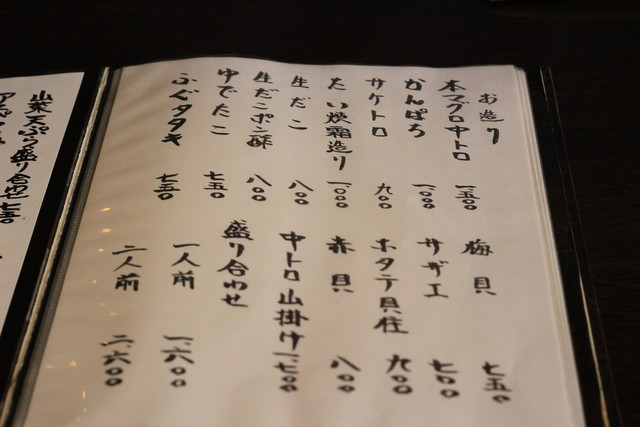 お造り
本マグロ中トロ 一、五〇〇
かんぱち 一、〇〇〇
サケトロ 九〇〇
たい炊霜造り 一、〇〇〇
生だこ 八〇〇
生だこポン酢 八〇〇
ゆでたこ 七五〇
ふぐタタキ 七五〇
梅貝 七五〇
サザエ 七〇〇
ホタテ貝柱 九〇〇
赤貝 八〇〇
中トロ山掛け 一、七〇〇
盛り合わせ
一人前 一、六〇〇
二人前 二、六〇〇
山菜天ぷら盛り合せ 七五〇